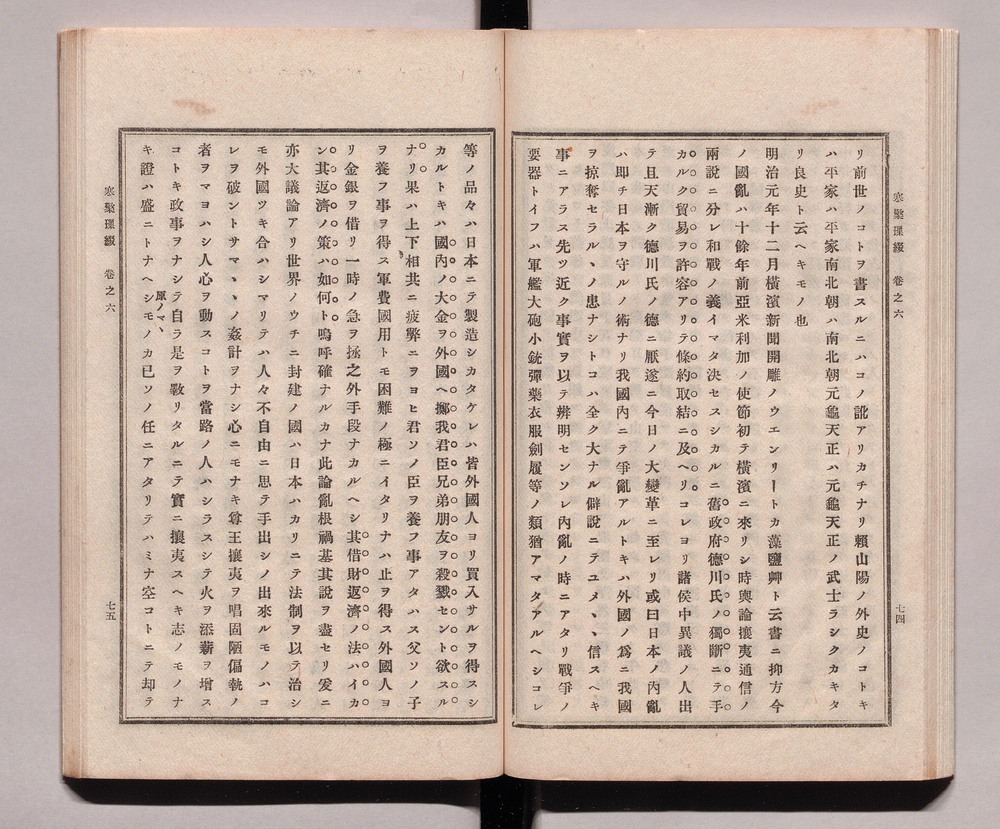 寒檠璅綴 卷之六
七四
リ前世ノコトヲ書スルニハコノ訛アリカチナリ賴山陽ノ外史ノコトキ
ハ平家ハ平家南北朝ハ南北朝元龜天正ハ元龜天正ノ武士ラシクカキタ
リ良史ト云ヘキモノ也
明治元年十二月橫濱新聞開雕ノウエンリートカ藻鹽艸ト云書ニ抑方今
ノ國亂ハ十餘年前亞米利加ノ使節初テ橫濱ニ來リシ時輿論攘夷通信ノ
兩說ニ分レ和戰ノ義イマタ決セスシカルニ舊政府德川氏ノ獨斷ニテ手
カルク貿易ヲ許容アリテ條約取結ニ及ヘリコレヨリ諸侯中異議ノ人出
テ且天漸ク德川氏ノ德ニ厭遂ニ今日ノ大變革ニ至レリ或曰日本ノ內亂
ハ即チ日本ヲ守ルノ術ナリ我國內ニテ爭亂アルトキハ外國ノ爲ニ我國
ヲ掠奪セラルヽノ患ナシトコハ全ク大ナル僻說ニテユメヽヽ信スヘキ
事ニアラス先ツ近ク事實ヲ以テ辨明センソレ內亂ノ時ニアタリ戰爭ノ
要器トイフハ軍艦大砲小銃彈藥衣服劍履等ノ類猶アマタアルヘシコレ
等ノ品々ハ日本ニテ製造シカタケレハ皆外國人ヨリ買入サルヲ得スシ
カルトキハ國內ノ大金ヲ外國ヘ擲我君臣兄弟朋友ヲ殺戮セント欲スル
ナリ果ハ上下相共ニ疲弊ニヲヨヒ君ソノ臣ヲ養フ事アタハス父ソノ子
ヲ養フ事ヲ得ス軍費國用トモ困難ノ極ニイタリナハ止ヲ得ス外國人ヨ
リ金銀ヲ借リ一時ノ急ヲ拯之外手段ナカルヘシ其借財返濟ノ法ハイカ
ン其返濟ノ策ハ如何ト嗚呼確ナルカナ此論亂根禍基其說ヲ盡セリ爰ニ
亦大議論アリ世界ノウチニ封建ノ國ハ日本ハカリニテ法制ヲ以テ治シ
モ外國ツキ合ハシマリテハ人々不自由ニ思テ手出シノ出來ルモノハコ
レヲ破ントサマヽヽノ姦計ヲナシ心ニモナキ尊王攘夷ヲ唱固陋偏執ノ
者ヲマヨハシ人心ヲ動スコトヲ當路ノ人ハシラスシテ火ヲ添薪ヲ增ス
コトキ政事ヲナシテ自ラ是ヲ斁リタルニテ實ニ攘夷スヘキ志ノモノナ
キ證ハ盛ニトナヘシモノカ已ソノ任ニアタリテハミナ空コトニテ却テ
原ノマヽ
寒檠璅綴 卷之六
七五